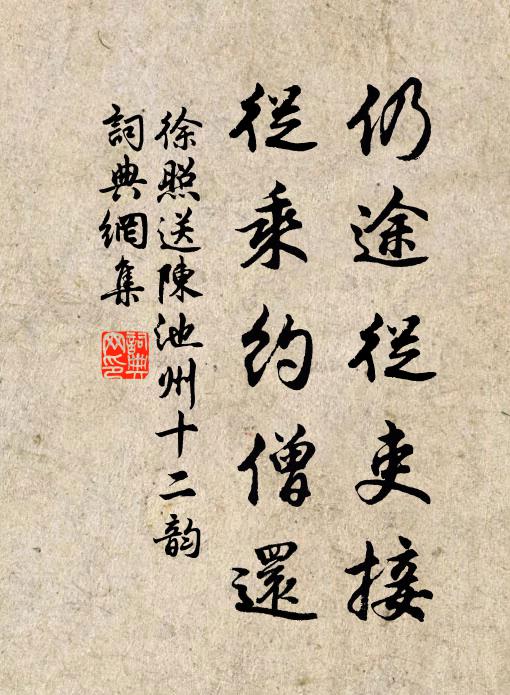 仍途從吏接
從乘約僧還
徐照送陳池州十二韵
詞典網集
詞典网印